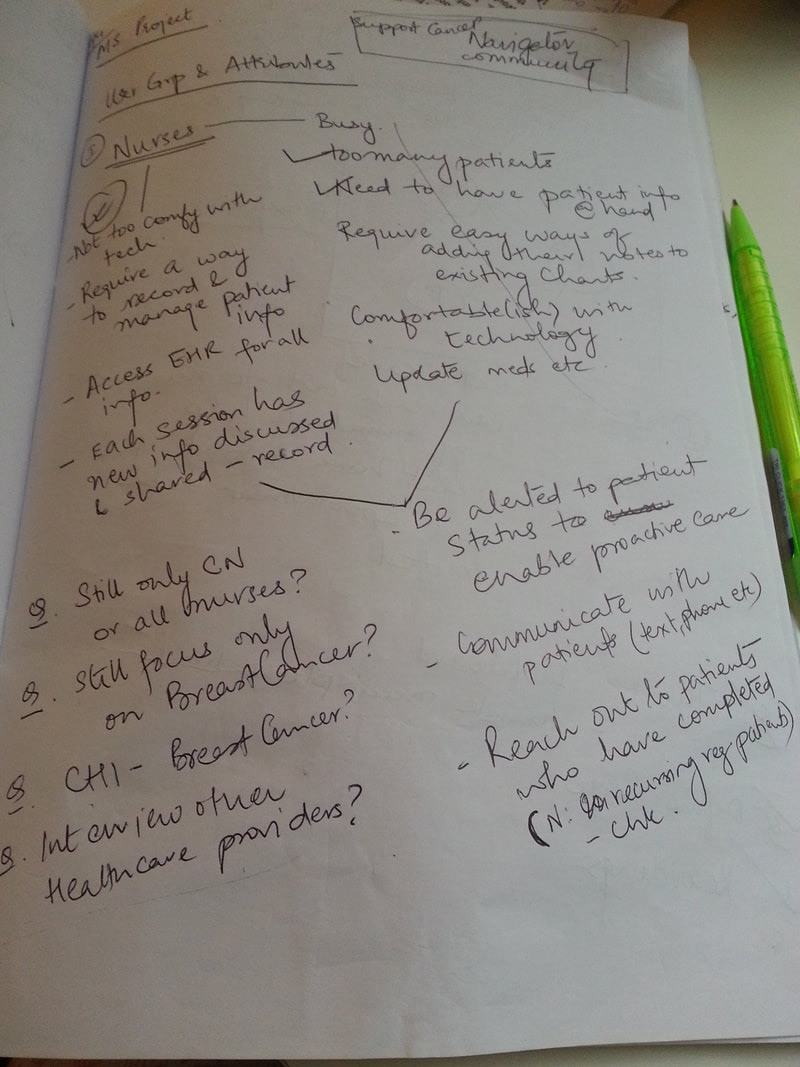 MS Project
Support Cancer
Navigator
community
User Grp & Attributes
Nurses
Busy.
too many patients
Need to have patient info
@ hand
Require easy ways of
adding their notes to
existing Charts.
Comfortable(ish) with
technology
Update meds etc
- Not too comfy with
tech.
- Require a way
to record &
manage patient
info
- Access EHR for all
info.
- Each session has
new info discussed
& shared - record.
- Be alerted to patient
status to
enable proactive care
- Communicate with
patients (text, phone etc)
- Reach out to patients
who have completed
(N: recurring reg patients)
- chk.
Q. Still only CN
or all nurses?
Q. Still focus only
on Breast Cancer?
Q. CHI - Breast Cancer?
Q. Interview other
Healthcare providers?